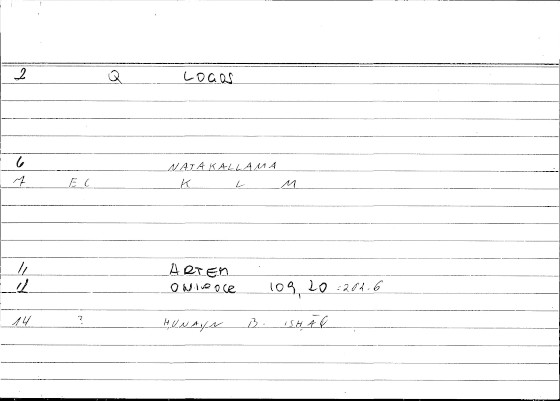 2 Q LOGOS
6 NATAKALLAMA
7 EC K L M
11 ARTEM
12 ONIROCR 109, 20 = 202.6
14 ? HUNAYN B. ISHĀQ